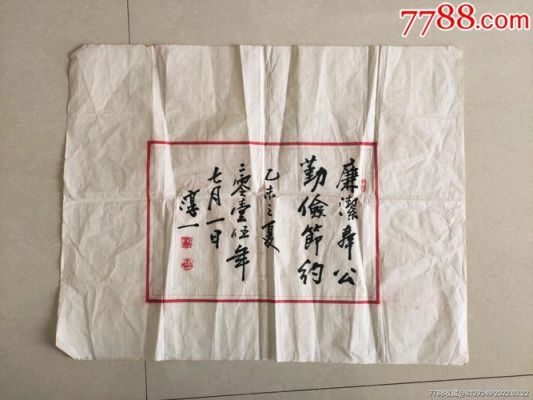 7788.com
廉潔奉公
勤儉節約
乙未之夏
二零壹伍年
七月一日